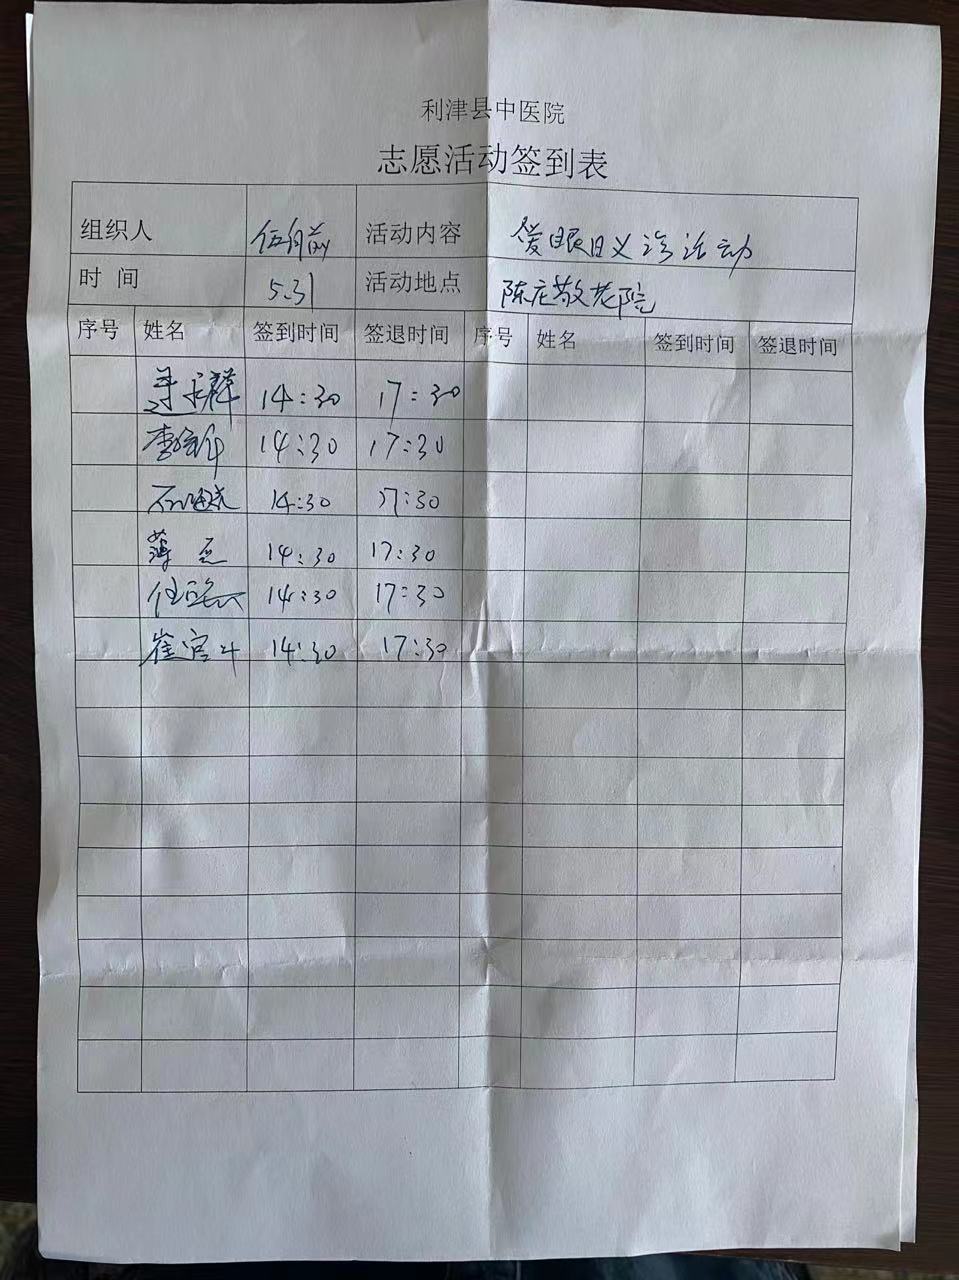 利津县中医院
志愿活动签到表
组织人 活动内容 爱眼日义诊活动
时间 5.31 活动地点 陈庄敬老院
序号 姓名 签到时间 签退时间 序号 姓名 签到时间 签退时间
14:30 17:30
14:30 17:30
14:30 17:30
薄 14:30 17:30
14:30 17:30
崔 14:30 17:30